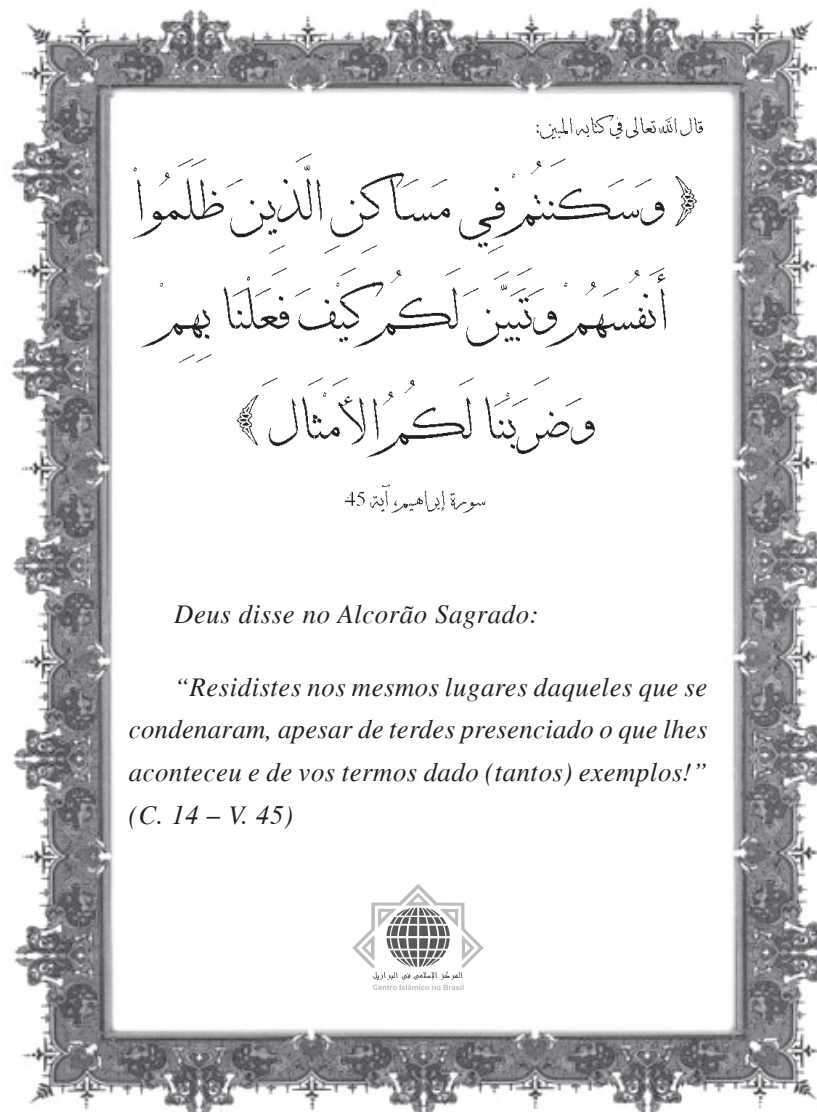 قال الله تعالى في كتابه المبين:
﴿ وَسَكَنتُمْ فِي مَسَاكِنِ الَّذِينَ ظَلَمُواْ
أَنفُسَهُمْ وَتَبَيَّنَ لَكُمْ كَيْفَ فَعَلْنَا بِهِمْ
وَضَرَبْنَا لَكُمُ الأَمْثَالَ ﴾
سورة إبراهيم، آية 45
Deus disse no Alcorão Sagrado:
“Residistes nos mesmos lugares daqueles que se
condenaram, apesar de terdes presenciado o que lhes
aconteceu e de vos termos dado (tantos) exemplos!”
(C. 14 – V. 45)
المركز الإسلامي في البرازيل
Centro Islâmico no Brasil